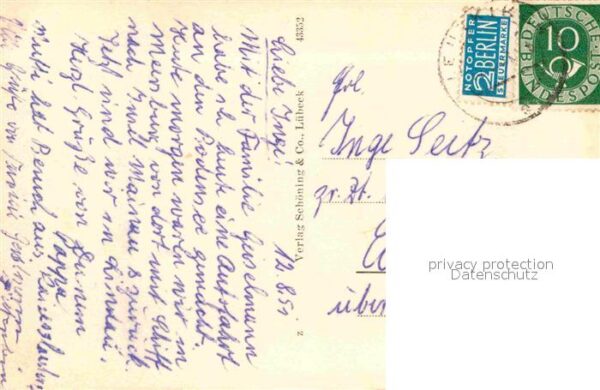 12.8.51
Liebe Inge!
Mit der Familie
habe ich heute eine Autofahrt
an den Bodensee gemacht.
Heute morgen waren wir in
Meersburg von dort mit Schiff
nach Insel Mainau & zurück.
Jetzt sind wir in Lindau.
Herzl Grüße von Deinem
Pappa
Mutti hat Besuch aus
Verlag Schöning & Co., Lübeck
43352
z
NOTOPFER
2 BERLIN
STEUERMARKE
DEUTSCHE
BUNDESPOST
10
Frl.
Inge Seitz
zr. Zt.
über
privacy protection
Datenschutz